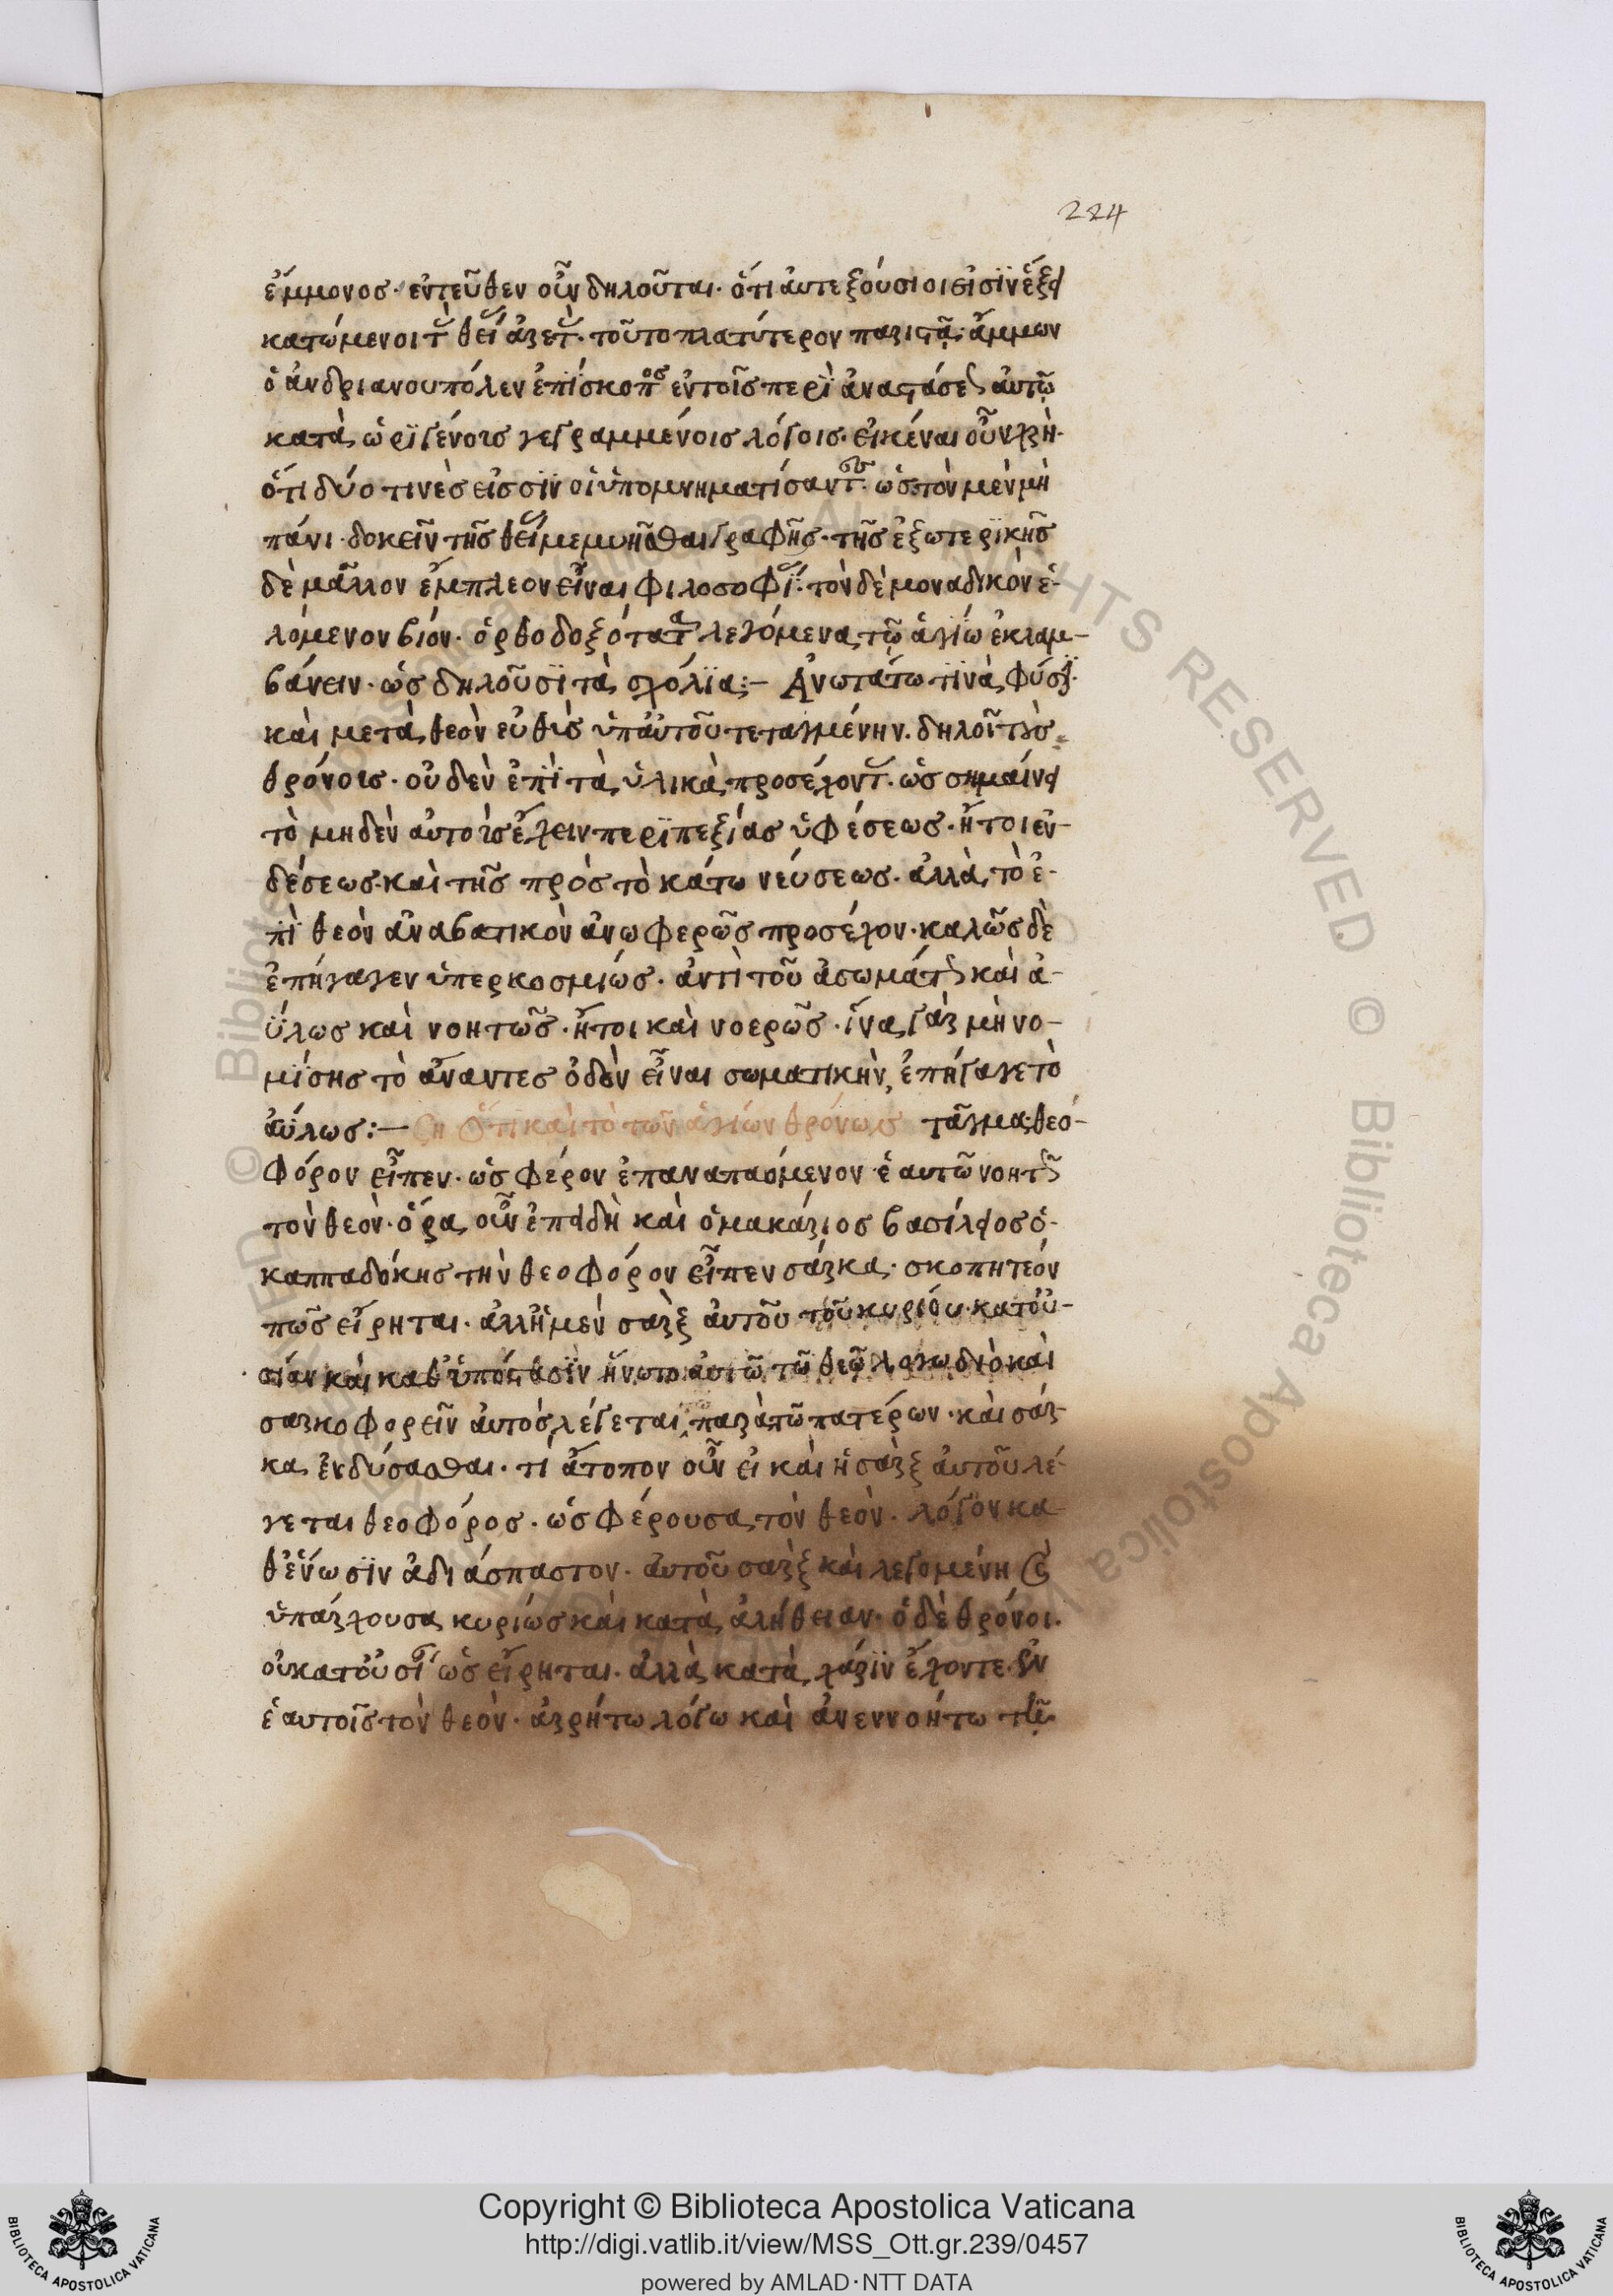 224
ἔμμονος· ἐντεῦθεν οὖν δηλοῦται· ὅτι ἀυτεξούσιοι εἰσῒν ἕξει
κατώμενοι τ θεί ἀρετ· τοῦτο πλατύτερον παριστᾶ· ἄμμων
ὁ ἀνδριανουπόλεν ἐπΐσκοπος ἐντοῖς περῒ ἀναστάσε αὐτῶ
κατὰ ὠρϊγένοις γεγραμμένοις λόγοις· εἰκέναι οὖν χρὴ·
ὅτι δύο τινὲς εἰσσῒν οἱ ὑπομνηματίσαντ· ὡς τὸν μὲν μὴ
πάνι· δοκεῖν τῆς θεί μεμυῆσθαι γραφῆς· τῆς ἐξωτερϊκῆς
δὲ μᾶλλον ἔμπλεον εἶναι φιλοσοφΐ· τὸν δὲ μοναδικὸν ἑ-
λόμενον βιόν· ὀρθοδοξότατα λεγόμενα τῶ ἁγίω ἐκλαμ-
βάνειν· ὡς δηλοῦσϊ τὰ σχόλϊα:- Ἀνωτάτω τϊνὰ φύσϊ·
καὶ μετὰ θεὸν εὐθὺς ὑπἀυτοῦ τεταγμένην. δηλοῖ τοὺς
θρόνοις· οὐδὲν ἐπῒ τὰ ὑλικὰ προσέχοντ· ὡς σημαίνει
τὸ μηδὲν αὐτοὶς ἔχειν περϊπεξίας ὑφέσεως· ἤτοι ἐν-
δέσεως· καὶ τῆς πρὸς τὸ κάτω νεύσεως· ἀλλὰ τὸ ἐ-
πῒ θεὸν ἀναβατικὸν ἀνωφερῶς προσέχον· καλῶς δὲ
ἐπήγαγεν ὑπερκοσμίως· ἀντὶ τοῦ ἀσωμάτ καὶ ἀ-
ΰλως καὶ νοητῶς· ἤτοι καὶ νοερῶς· ἵνα γὰρ μὴ νο-
μΐσης τὸ ἄναντες ὁδὸν εἶναι σωματικὴν, ἐπήγαγε τὸ
ἀΰλως:— ση ὅτι καὶ τὸ τῶν ἁγίων θρόνως τᾶγμα θεό-
φόρον εἶπεν· ὡς φέρον ἐπαναπαόμενον ἑαυτῶ νοητ
τὸν θεὸν· ὅρα οὖν ἐπειδὴ καὶ ὁ μακάριος βασίλειος ὁ-
καππαδόκης τὴν θεοφόρον εἶπεν σάρκα· σκοπητεόν
πῶς εἴρηται· ἀλλἡ μὲν σαρξ ἀυτοῦ τοῦ κυρίου· κατοὐ-
σίαν καὶ καθὑπόστασϊν ἥνωτο ἀσιῶ τῶ θεῶ λόγω διὸ καὶ
σαρκοφορεῖν ἀυτὸς λέγεται παρὰ τῶ πατέρων· καὶ σάρ-
κα ἐνδύσασθαι· τί ἄτοπον οὖν εἰ καὶ ἡ σὰρξ ἀυτοῦ λέ-
γεται θεοφόρος· ὡς φέρουσα τὸν θεὸν· λόγον κα-
θἑνωσϊν ἀδιάσπαστον· ἀυτοῦ σαρξ καὶ λεγομένη καὶ
ὑπάρχουσα κυρίως καὶ κατὰ ἀλήθειαν· ὁ δὲ θρόνοι.
οὐκατοὐσί ὡς εἴρηται· ἀλλὰ κατὰ χάρϊν ἔχοντε· ἐν
ἑαυτοῖς τὸν θεὸν· ἀρρήτω λόγω καὶ ἀνεννοήτω
Copyright © Biblioteca Apostolica Vaticana
http://digi.vatlib.it/view/MSS_Ott.gr.239/0457
powered by AMLAD·NTT DATA